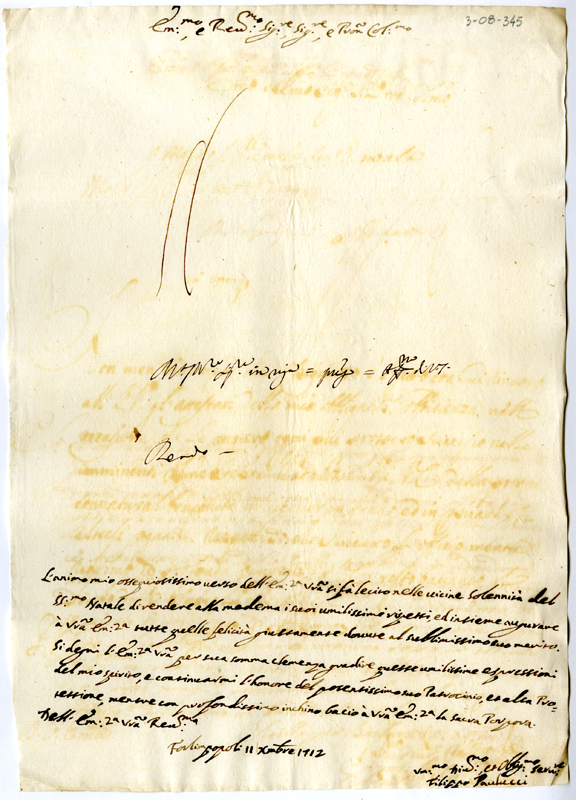 3-08-345
Em:mo, e Rev:mo Sig:re, Sig:re, e Pron Col:mo
in
Rendo —
L'animo mio ossequiosissimo verso dell'Em:za Vrã si fà lecito nelle vicine solennità del
SS:mo Natale di rendere alla medema i suoi umilissimi rispetti, ed insieme augurare
à Vrã Em:za tutte quelle felicità giustamente dovute al sublimissimo suo merito.
Si degni l'Em:za Vrã per sua somma clemenza gradire queste umilissime espressioni
del mio spirito, e continuarmi l'honore del potentissimo suo Patrocinio, et alta Pro-
tettione, mentre con profondissimo inchino bacio à Vrã Em:za la sacra Porpora.
Dell'Em:za Vrã Rev:ma
Forlimpopoli 11 Xmbre 1712
Um:mo Div:mo et Oblig:mo Serv:re
Filippo Paulucci